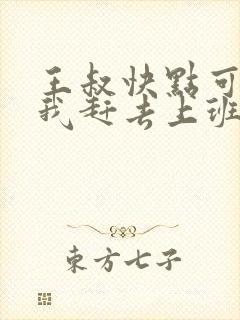 王叔快點可
我赶去上班
東方七子